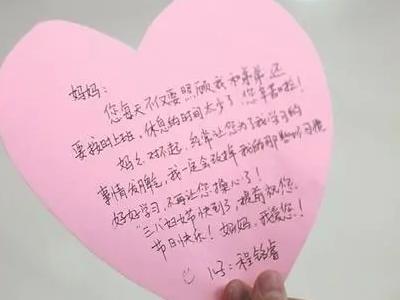 妈妈：
您每天不仅要照顾我和弟弟还
要按时上班，休息的时间太少了，您辛苦啦！
妈妈对不起，经常让您为了我学习的
事情发脾气，我一定会改掉我的那些坏习惯
好好学习，不再让您操心了！
"三八"妇女节快到了，提前祝您
节日快乐！妈妈，我爱您！
程铭睿